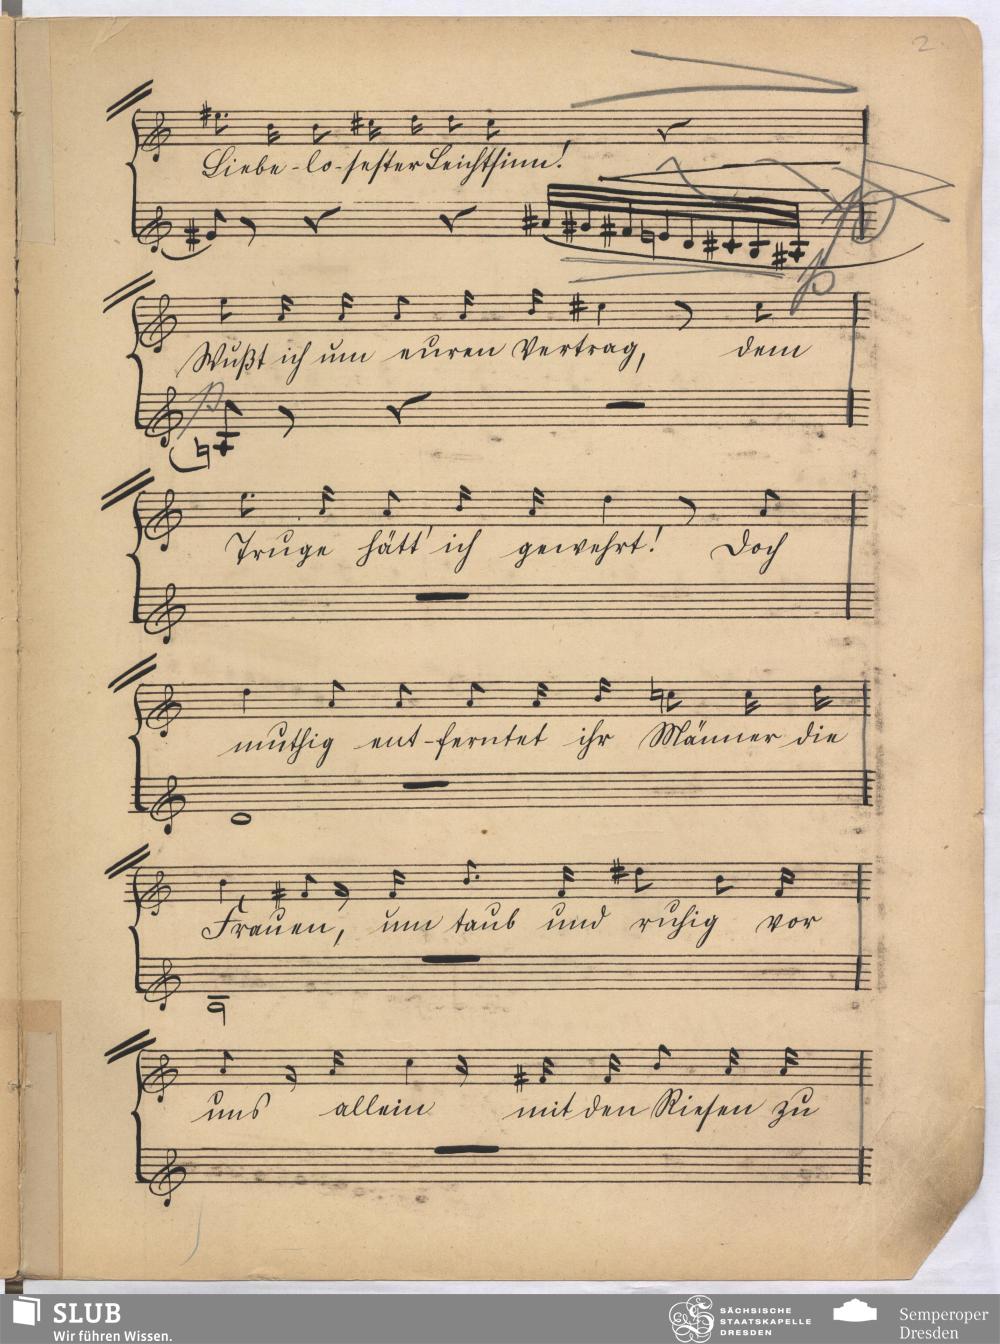 2.
Liebe-lo-sester Leichtsinn!
p
Wußt ich um euren Vertrag, dem
p
Truge hätt' ich gewehrt! Doch
muthig ent-ferntet ihr Männer die
Frauen, um taub und ruhig vor
uns allein mit den Riesen zu
SLUB
Wir führen Wissen.
SÄCHSISCHE
STAATSKAPELLE
DRESDEN
Semperoper
Dresden